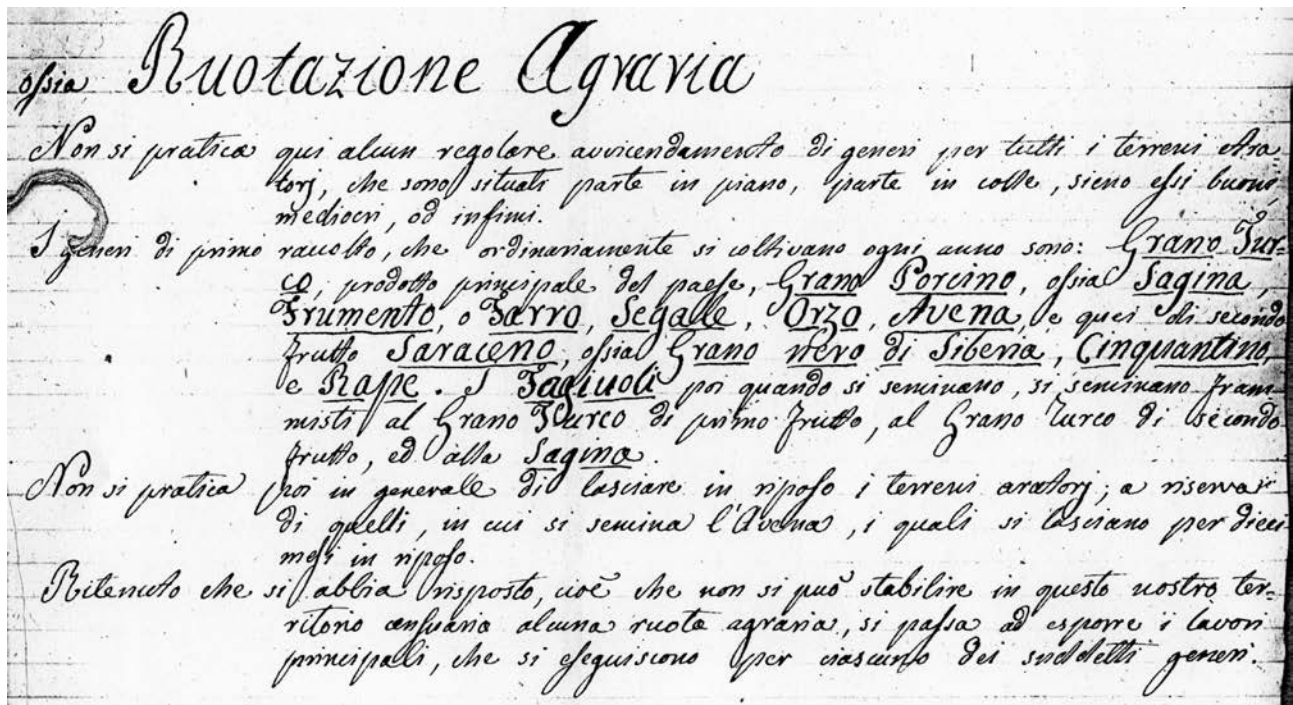 ossia Ruotazione Agraria
Non si pratica qui alcun regolare avvicendamento di generi per tutti i terreni Ara-
torj, che sono situati parte in piano, parte in colle, sieno essi buoni,
mediocri, od infimi.
I generi di primo raccolto, che ordinariamente si coltivano ogni anno sono: Grano Tur-
co, prodotto principale del paese, Grano Porcino, ossia Sagina,
Frumento, o Farro, Segalle, Orzo, Avena, e quei di secondo
frutto Saraceno, ossia Grano nero di Siberia, Cinquantino,
e Rape. I Fagiuoli poi quando si seminano, si seminano fram-
misti al Grano Turco di primo frutto, al Grano Turco di secondo
frutto, ed alla Sagina.
Non si pratica poi in generale di lasciare in riposo i terreni aratorj; a riserva
di quelli, in cui si semina l'Avena, i quali si lasciano per dieci
mesi in riposo.
Ritenuto che si abbia risposto, cioè che non si può stabilire in questo nostro ter-
ritorio censuario alcuna ruota agraria, si passa ad esporre i lavori
principali, che si eseguiscono per ciascuno dei suddetti generi.